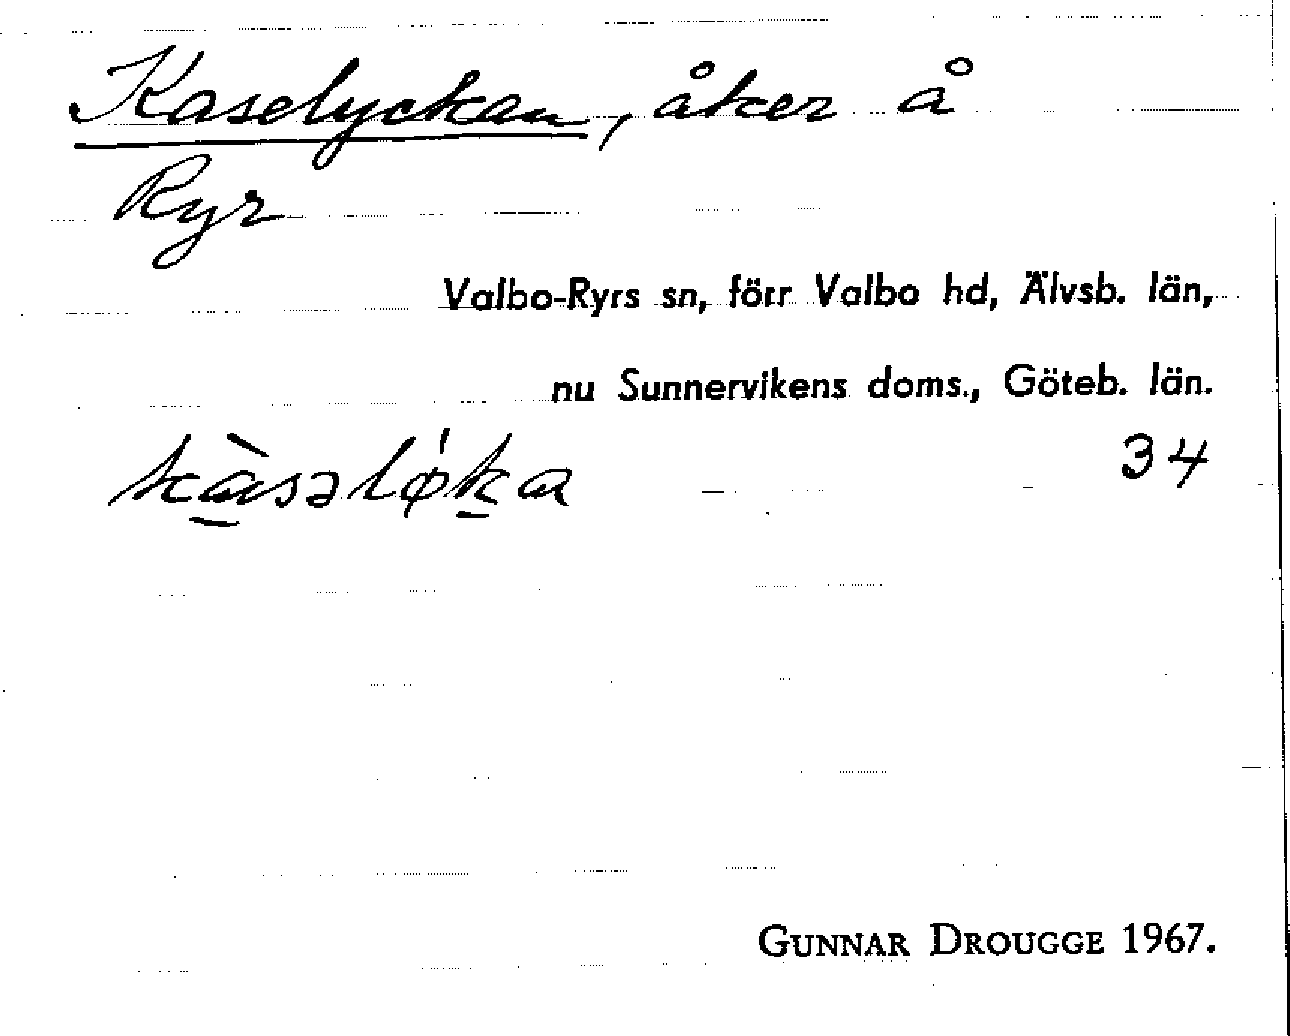 Kaselyckan, åker å
Ryr
Valbo-Ryrs sn, förr Valbo hd, Älvsb. län,
nu Sunnervikens doms., Göteb. län.
kàsəlǿka 34
GUNNAR DROUGGE 1967.